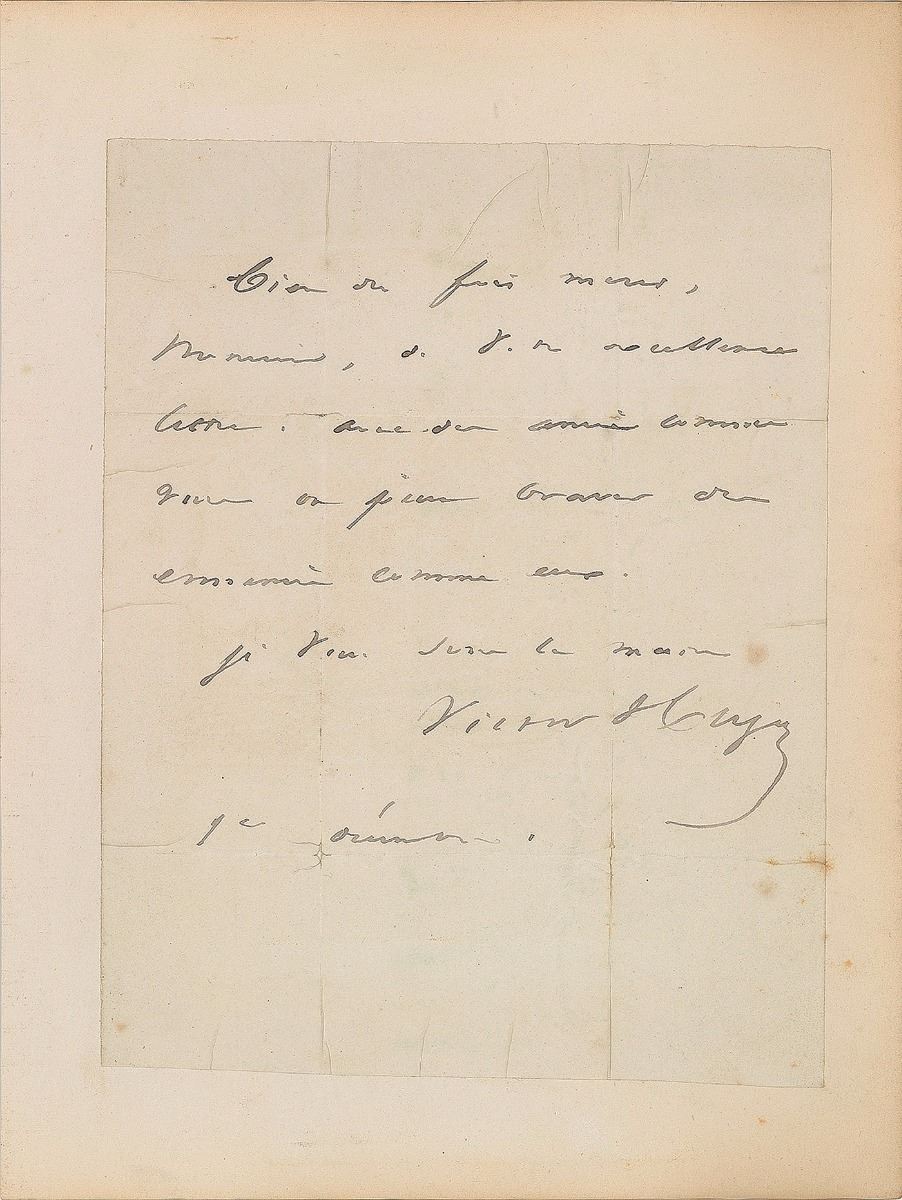 Bien des fois merci,
Monsieur, de votre excellente
lettre. avec des amis comme
vous on peut braver des
ennemis comme eux.
je vous serre la main
Victor Hugo
1er décembre.